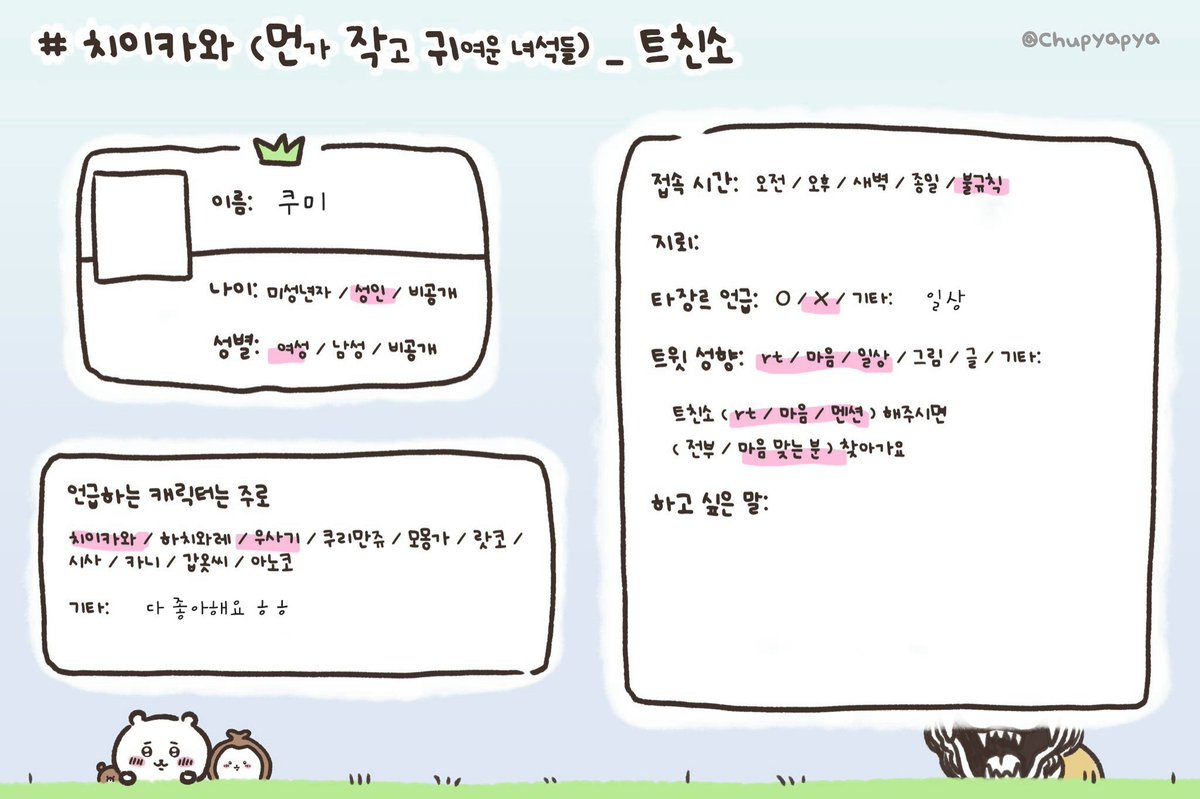 # 치이카와 (먼가 작고 귀여운 녀석들) _ 트친소
@Chupyapya
이름: 쿠미
나이: 미성년자 / 성인 / 비공개
성별: 여성 / 남성 / 비공개
언급하는 캐릭터는 주로
치이카와 / 하치와레 / 우사기 / 쿠리만쥬 / 모몽가 / 랏코 /
시사 / 카니 / 갑옷씨 / 아노코
기타: 다 좋아해요 ㅎㅎ
접속 시간: 오전 / 오후 / 새벽 / 종일 / 불규칙
지뢰:
타장르 언급: O / X / 기타: 일상
트윗 성향: rt / 마음 / 일상 / 그림 / 글 / 기타:
트친소 ( rt / 마음 / 멘션 ) 해주시면
( 전부 / 마음 맞는 분 ) 찾아가요
하고 싶은 말: